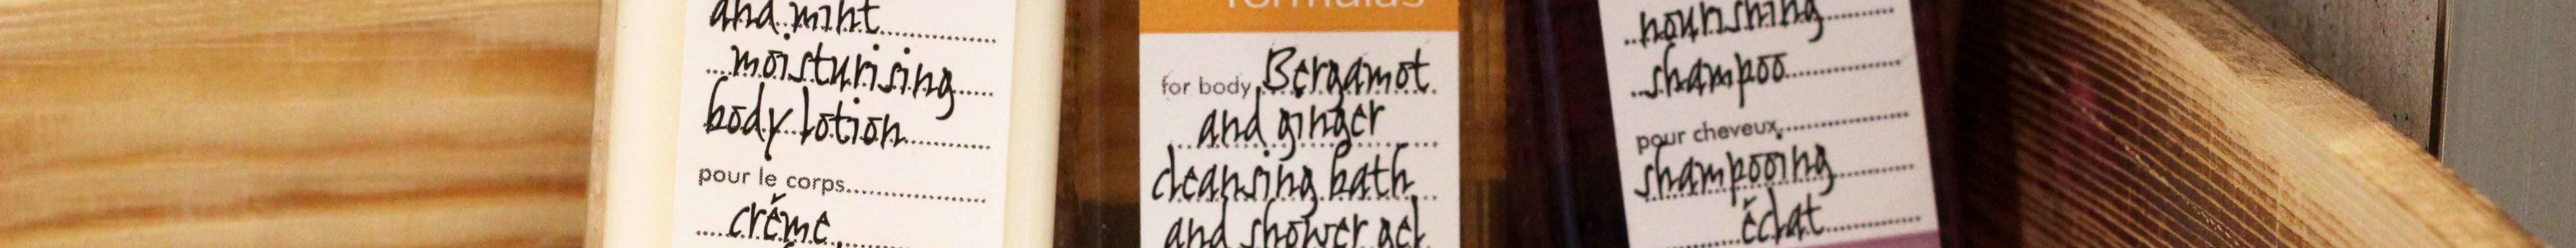 and mint
moisturising
body lotion
pour le corps
crème
formulas
for body Bergamot
and ginger
cleansing bath
and shower gel
nourishing
shampoo
pour cheveux
shampooing
éclat